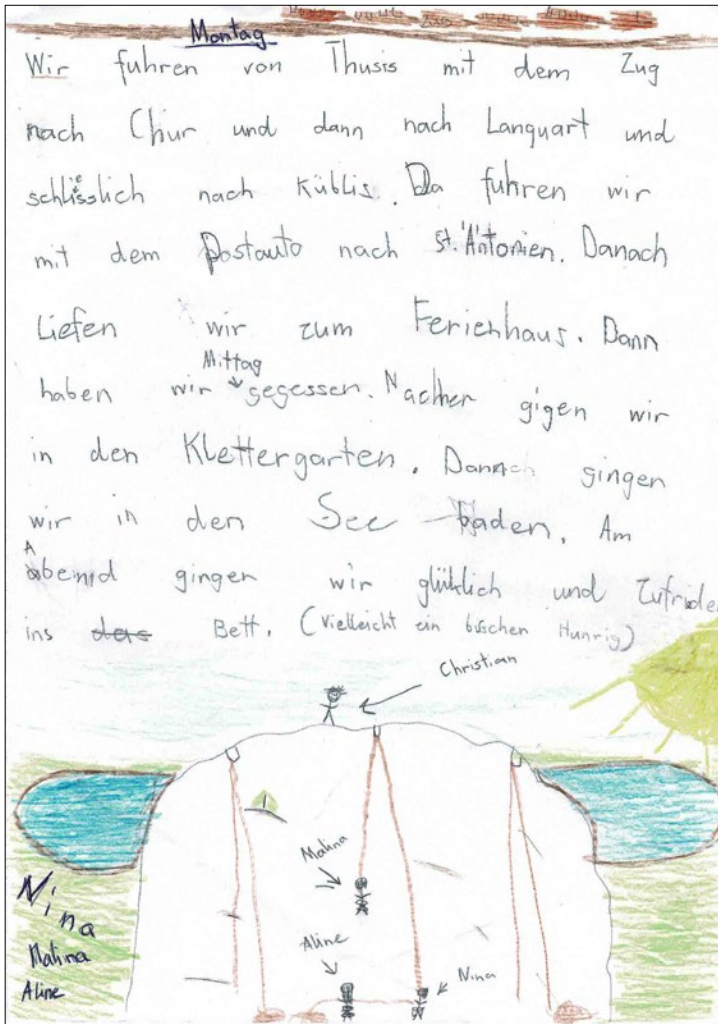 Montag
Wir fuhren von Thusis mit dem Zug
nach Chur und dann nach Lanquart und
schliesslich nach Küblis. Da fuhren wir
mit dem Postauto nach St. Äntonien. Danach
Liefen wir zum Ferienhaus. Dann
haben wir Mittag gegessen. Nachher gigen wir
in den Klettergarten. Danach gingen
wir in den See baden. Am
Abend gingen wir glüklich und Zufriden
ins das Bett. (Vielleicht ein bisschen Hunrig)
Christian
Malina
Aline
Nina
Nina
Malina
Aline